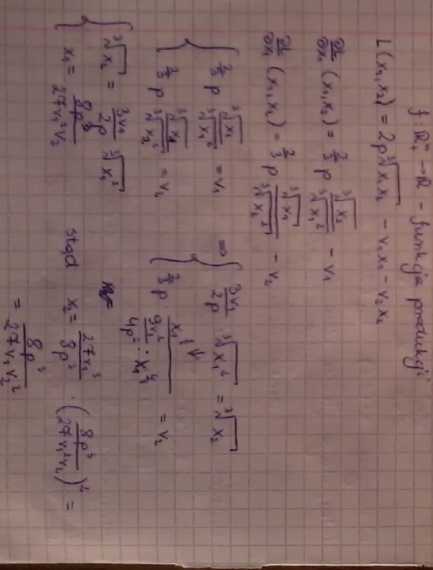 f: R²₊ → R - funkcja produkcji
L(x₁,x₂) = 2p∛(x₁x₂) - v₁x₁ - v₂x₂
∂L/∂x₁ (x₁,x₂) = 2/3 p ∛x₂/∛(x₁²) - v₁
∂L/∂x₂ (x₁,x₂) = 2/3 p ∛x₁/∛(x₂²) - v₂
{ 2/3 p ∛x₂/∛(x₁²) = v₁
2/3 p ∛x₁/∛(x₂²) = v₂
⇔ { 3v₁/2p · ∛(x₁²) = ∛x₂
2/3 p · x₁^(1/3) / (9v₁²/4p² · x₁^(4/3)) = v₂
{ ∛x₂ = 3v₁/2p ∛(x₁²)
x₁ = 8p³/27v₁²v₂
stąd x₂ = 27v₁³/8p³ · (8p³/27v₁²v₂)² =
= 8p³/27v₁v₂²